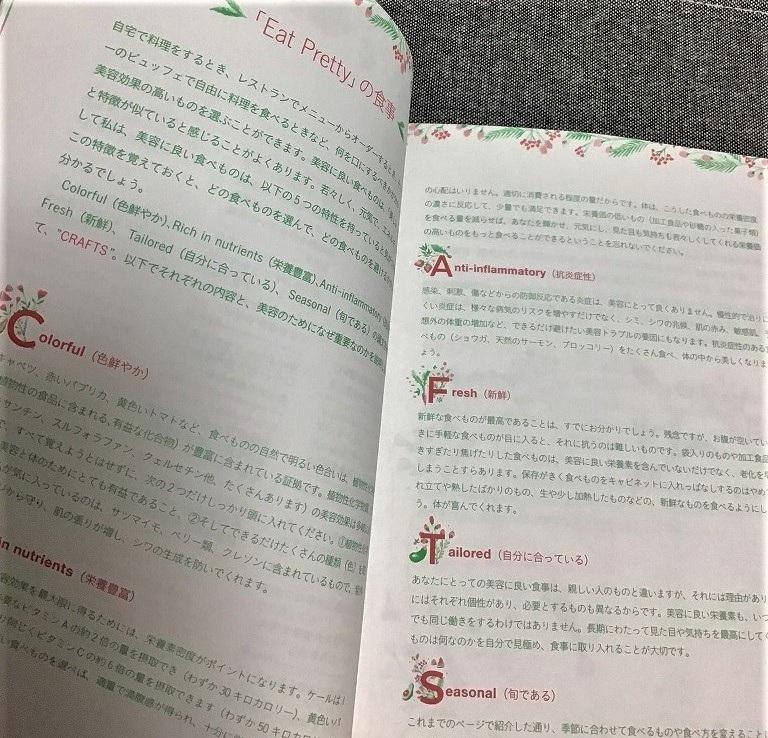 「Eat Pretty」の食事
自宅で料理をするとき、レストランでメニューからオーダーするとき、
ーのビュッフェで自由に料理を食べるときなど、何を口にするべきか
美容効果の高いものを選ぶことができます。美容に良い食べものは、
と特徴が似ていると感じることがよくあります。若々しく、元気で、
して私は、美容に良い食べものは、以下の5つの特性を持っていると
この特徴を覚えておくと、どの食べものを選んで、どの食べものを避けるか
分かるでしょう。
Colorful（色鮮やか）、Rich in nutrients（栄養豊富）、Anti-inflammatory
Fresh（新鮮）、Tailored（自分に合っている）、Seasonal（旬である）の
て、"CRAFTS"。以下でそれぞれの内容と、美容のためになぜ重要なのかを
Colorful（色鮮やか）
キャベツ、赤いパプリカ、黄色いトマトなど、食べものの自然で明るい色合いは、植物
植物性の食品に含まれる、有益な化合物）が豊富に含まれている証拠です。植物性化学
キサンチン、スルフォラファン、クェルセチン他、たくさんあります）の美容効果は
で、すべて覚えようとはせずに、次の2つだけしっかり頭に入れてください。①植物性
美容と体のためにとても有益であること、②そしてできるだけたくさんの種類（色）を
が気に入っているのは、サツマイモ、ベリー類、クレソンに含まれているもので、
から守り、肌の張りが増し、シワの生成を防いでくれます。
in nutrients（栄養豊富）
容効果を最大限に得るためには、栄養素密度がポイントになります。ケールは
要なビタミンAの約2倍の量を摂取でき（わずか30キロカロリー）、黄色いパ
同じくビタミンCの約6倍の量を摂取できます（わずか50キロカロ
い食べものを選べば、適量で満腹感が得られ、十分に
の心配はいりません。適切に消費される程度の量だからです。体は、こうした食べものの栄養密度
の濃さに反応して、少量でも満足できます。栄養価の低いもの（加工食品や砂糖の入った菓子類）
を食べる量を減らせば、あなたを輝かせ、元気にし、見た目も気持ちも若々しくしてくれる栄養価
の高いものをもっと食べることができるということを忘れないでください。
Anti-inflammatory（抗炎症性）
感染、刺激、傷などからの防御反応である炎症は、美容にとって良くありません。慢性的で治りに
くい炎症は、様々な病気のリスクを増やすだけでなく、シミ、シワの兆候、肌の赤み、敏感肌、
想外の体重の増加など、できるだけ避けたい美容トラブルの要因にもなります。抗炎症性のある
べもの（ショウガ、天然のサーモン、ブロッコリー）をたくさん食べ、体の中から美しくなりま
ょう。
Fresh（新鮮）
新鮮な食べものが最高であることは、すでにお分かりでしょう。残念ですが、お腹が空いてい
きに手軽な食べものが目に入ると、それに抗うのは難しいものです。袋入りのものや加工食品
きすぎたり焦げたりした食べものは、美容に良い栄養素を含んでいないだけでなく、老化を
しまうことすらあります。保存がきく食べものをキャビネットに入れっぱなしするのはやめ
れ立てや熟したばかりのもの、生や少し加熱したものなどの、新鮮なものを食べるようにし
う。体が喜んでくれます。
Tailored（自分に合っている）
あなたにとっての美容に良い食事は、親しい人のものと違いますが、それには理由があり
にはそれぞれ個性があり、必要とするものも異なるからです。美容に良い栄養素も、いつ
でも同じ働きをするわけではありません。長期にわたって見た目や気持ちを最高にして
ものは何なのかを自分で見極め、食事に取り入れることが大切です。
Seasonal（旬である）
これまでのページで紹介した通り、季節に合わせて食べるものや食べ方を変えること